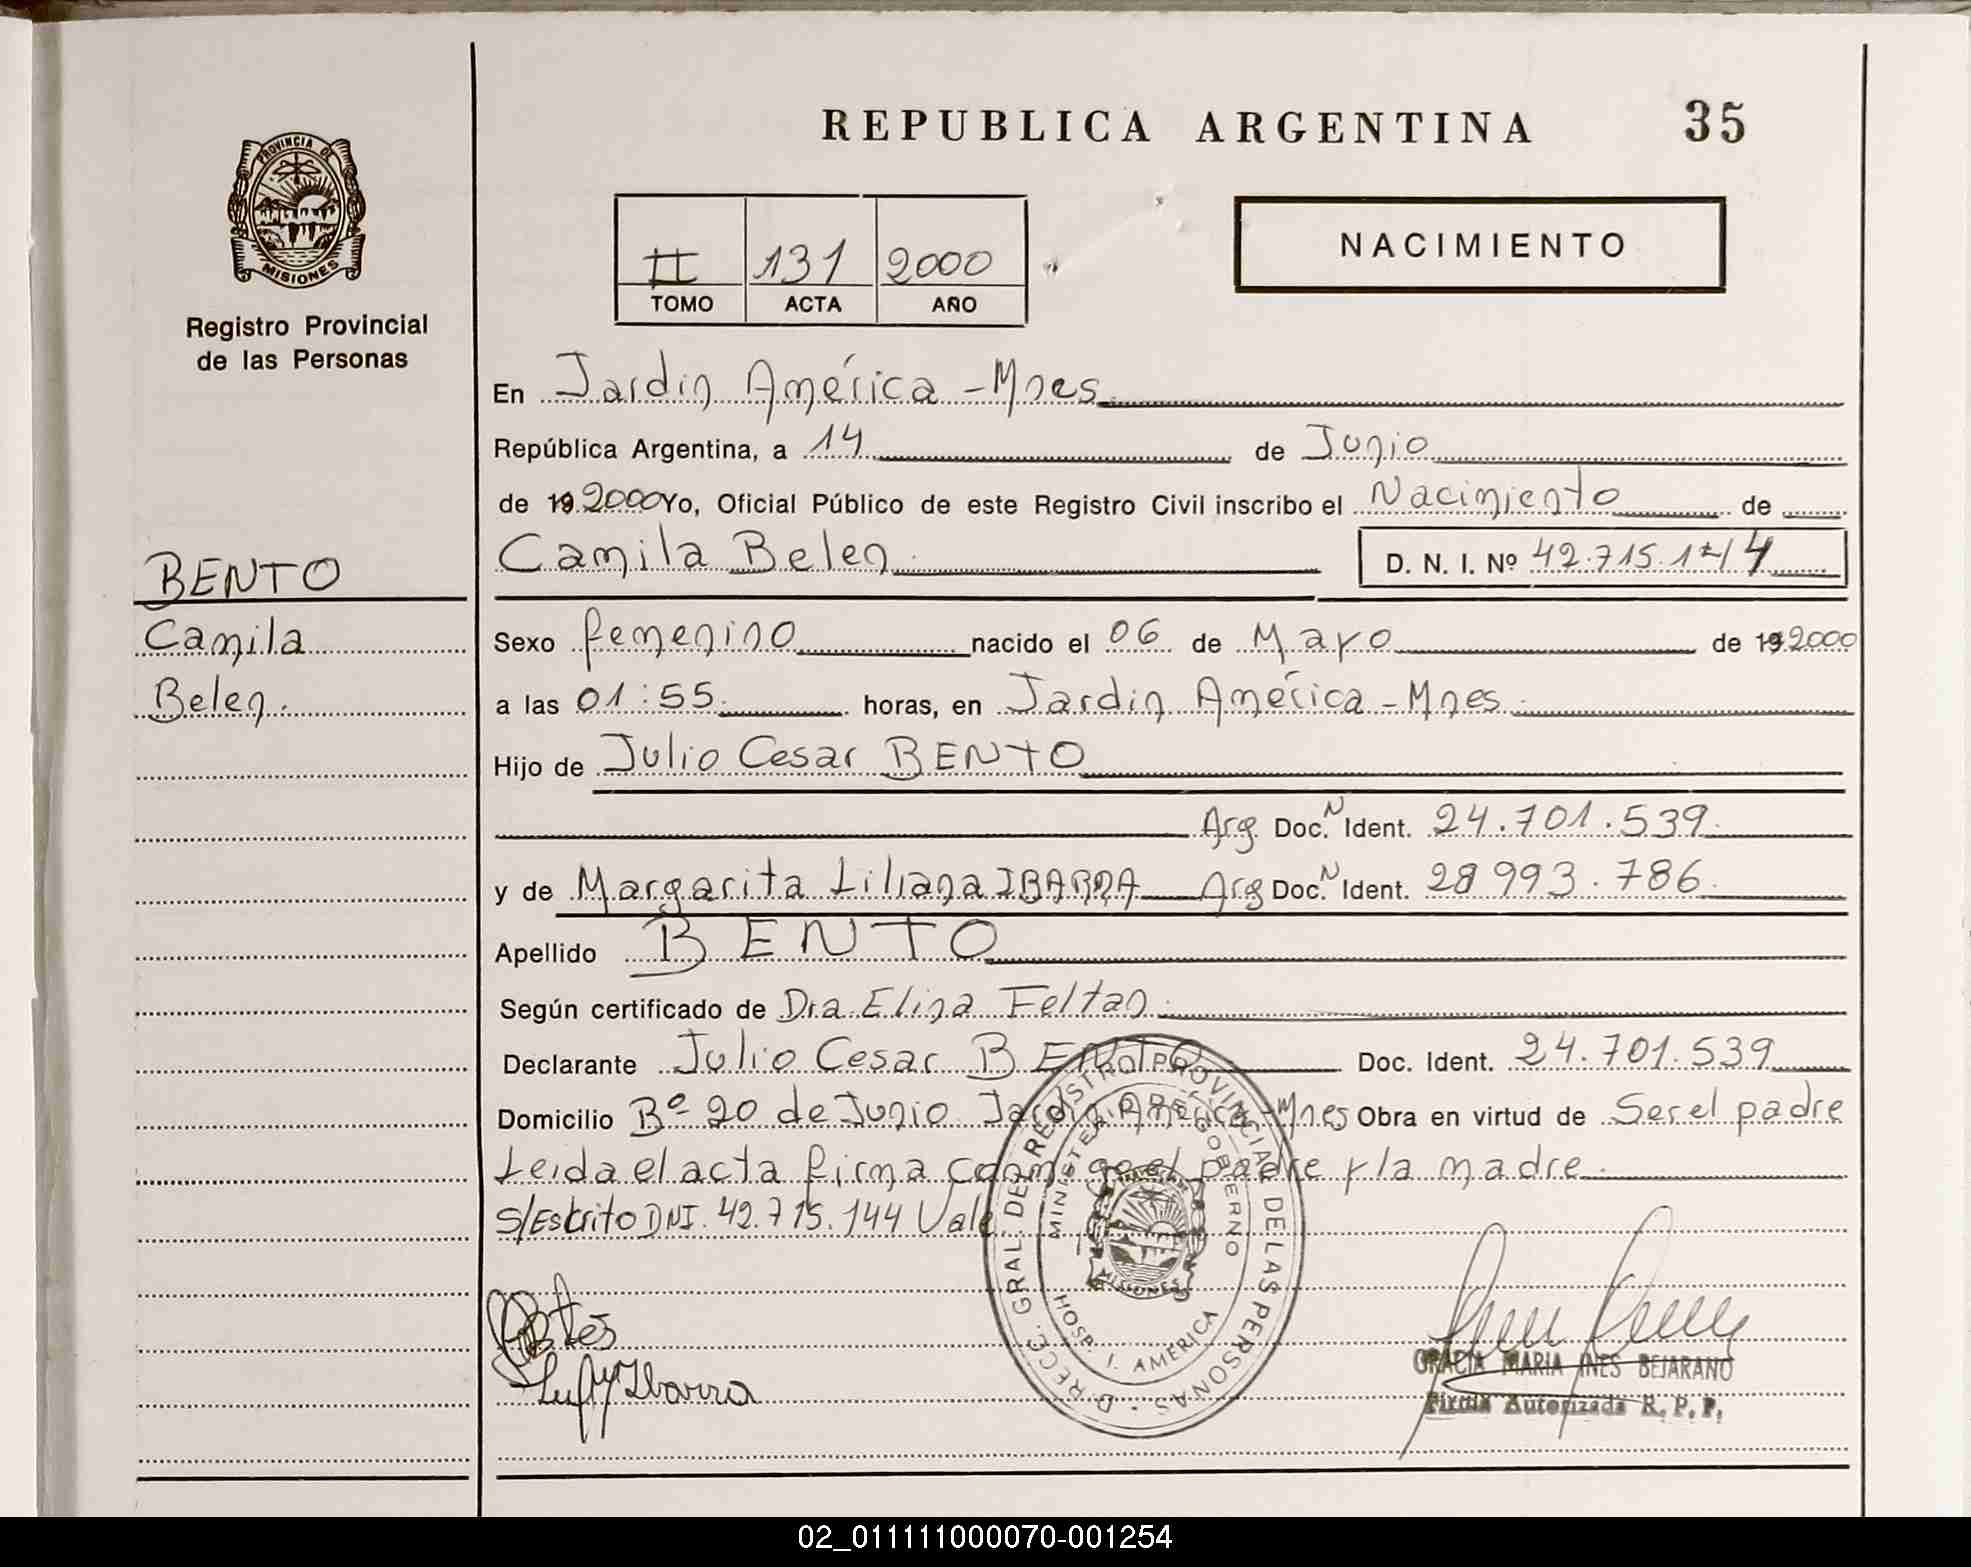 REPUBLICA ARGENTINA 35
PROVINCIA DE
MISIONES
Registro Provincial
de las Personas
II 131 2000
TOMO ACTA AÑO
NACIMIENTO
En Jardin América - Mnes
República Argentina, a 14 de Junio
de 19 2000 Yo, Oficial Público de este Registro Civil inscribo el Nacimiento de
Camila Belen D. N. I. Nº 42.715.144
BENTO
Camila
Belen.
Sexo femenino nacido el 06 de Mayo de 19 2000
a las 01:55 horas, en Jardin América - Mnes
Hijo de Julio Cesar BENTO
Arg Doc. N Ident. 24.701.539
y de Margarita Liliana IBARRA Arg Doc. N Ident. 28 993.786
Apellido BENTO
Según certificado de Dra. Elina Feltan
Declarante Julio Cesar BENTO Doc. Ident. 24.701.539
Domicilio Bº 20 de Junio Jardin América - Mnes Obra en virtud de Ser el padre
Leida el acta firma conmigo el padre y la madre
S/Escrito DNI. 42.715.144 Vale
DIRECC. GRAL. DEL REGISTRO PROVINCIAL DE LAS PERSONAS
MINISTERIO DE GOBIERNO
MISIONES
HOSP. J. AMERICA
Ibarra
GRACIA MARIA INES BEJARANO
Firma Autorizada R. P. P.
02_011111000070-001254